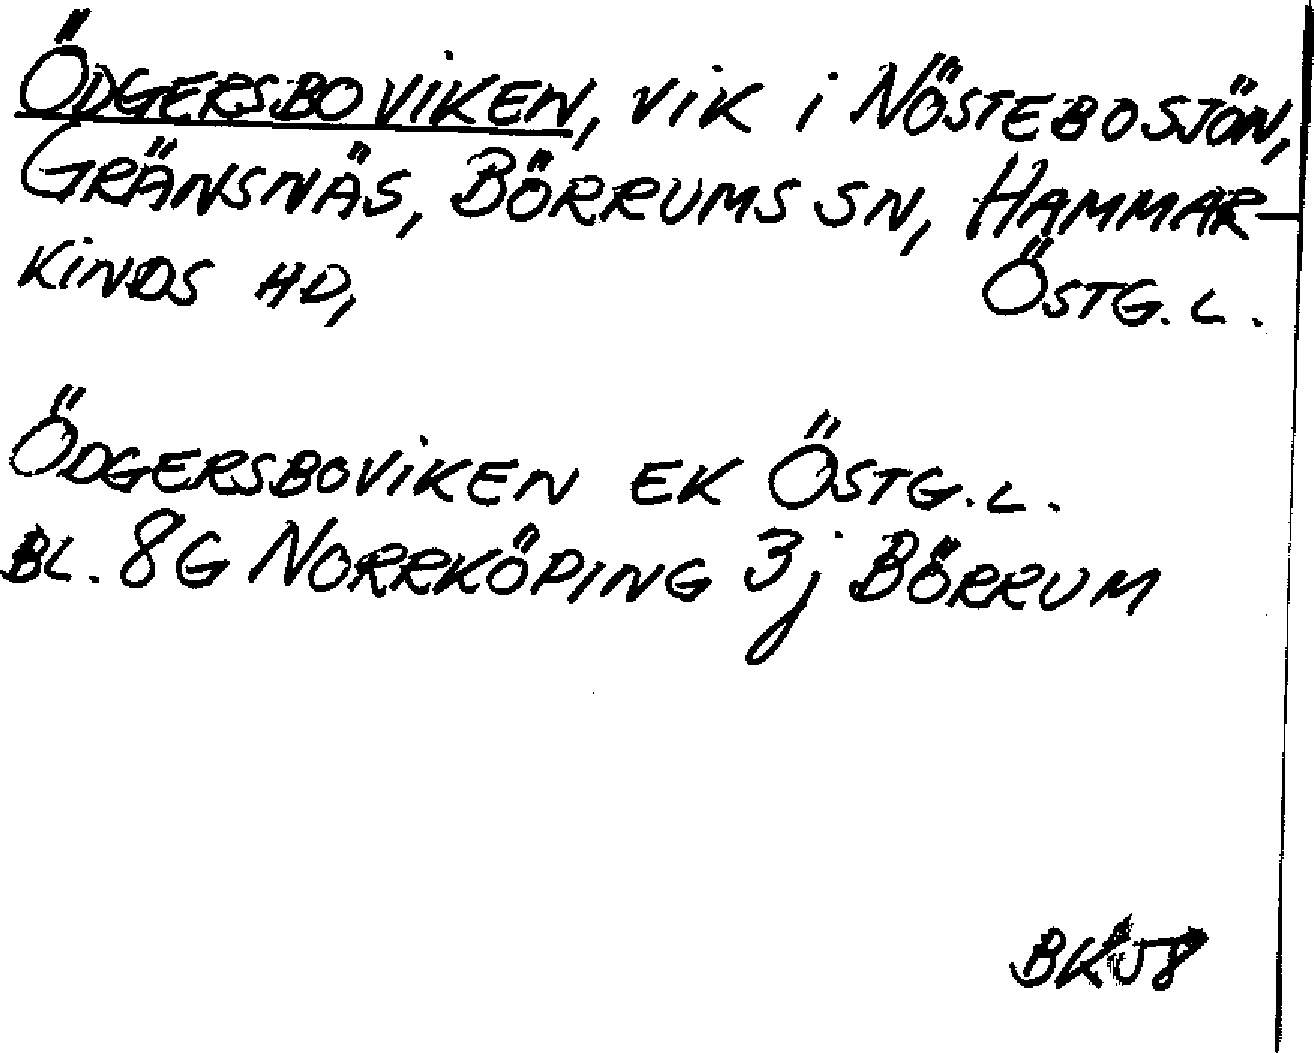 ÖDGERSBOVIKEN, VIK I NÖSTEBOSJÖN,
GRÄNSNÄS, BÖRRUMS SN, HAMMAR-
KINDS HD, ÖSTG. L.
ÖDGERSBOVIKEN EK ÖSTG. L.
BL. 8G NORRKÖPING 3j BÖRRUM